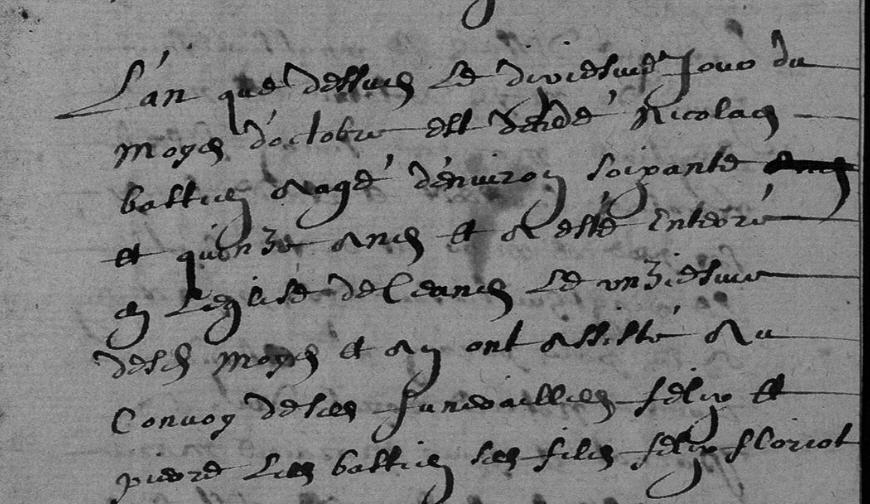 L'an que dessus le dixiesme Jour du
moys d'octobre est decedé Nicolas
bastien aagé d'environ soixante
et quinze ans et a esté enteré
en Leglise de Ceans Le unziesme
desd moys et an ont assisté au
Convoy de ses funerailles felix et
pierre Les bastien ses fils felix floriot